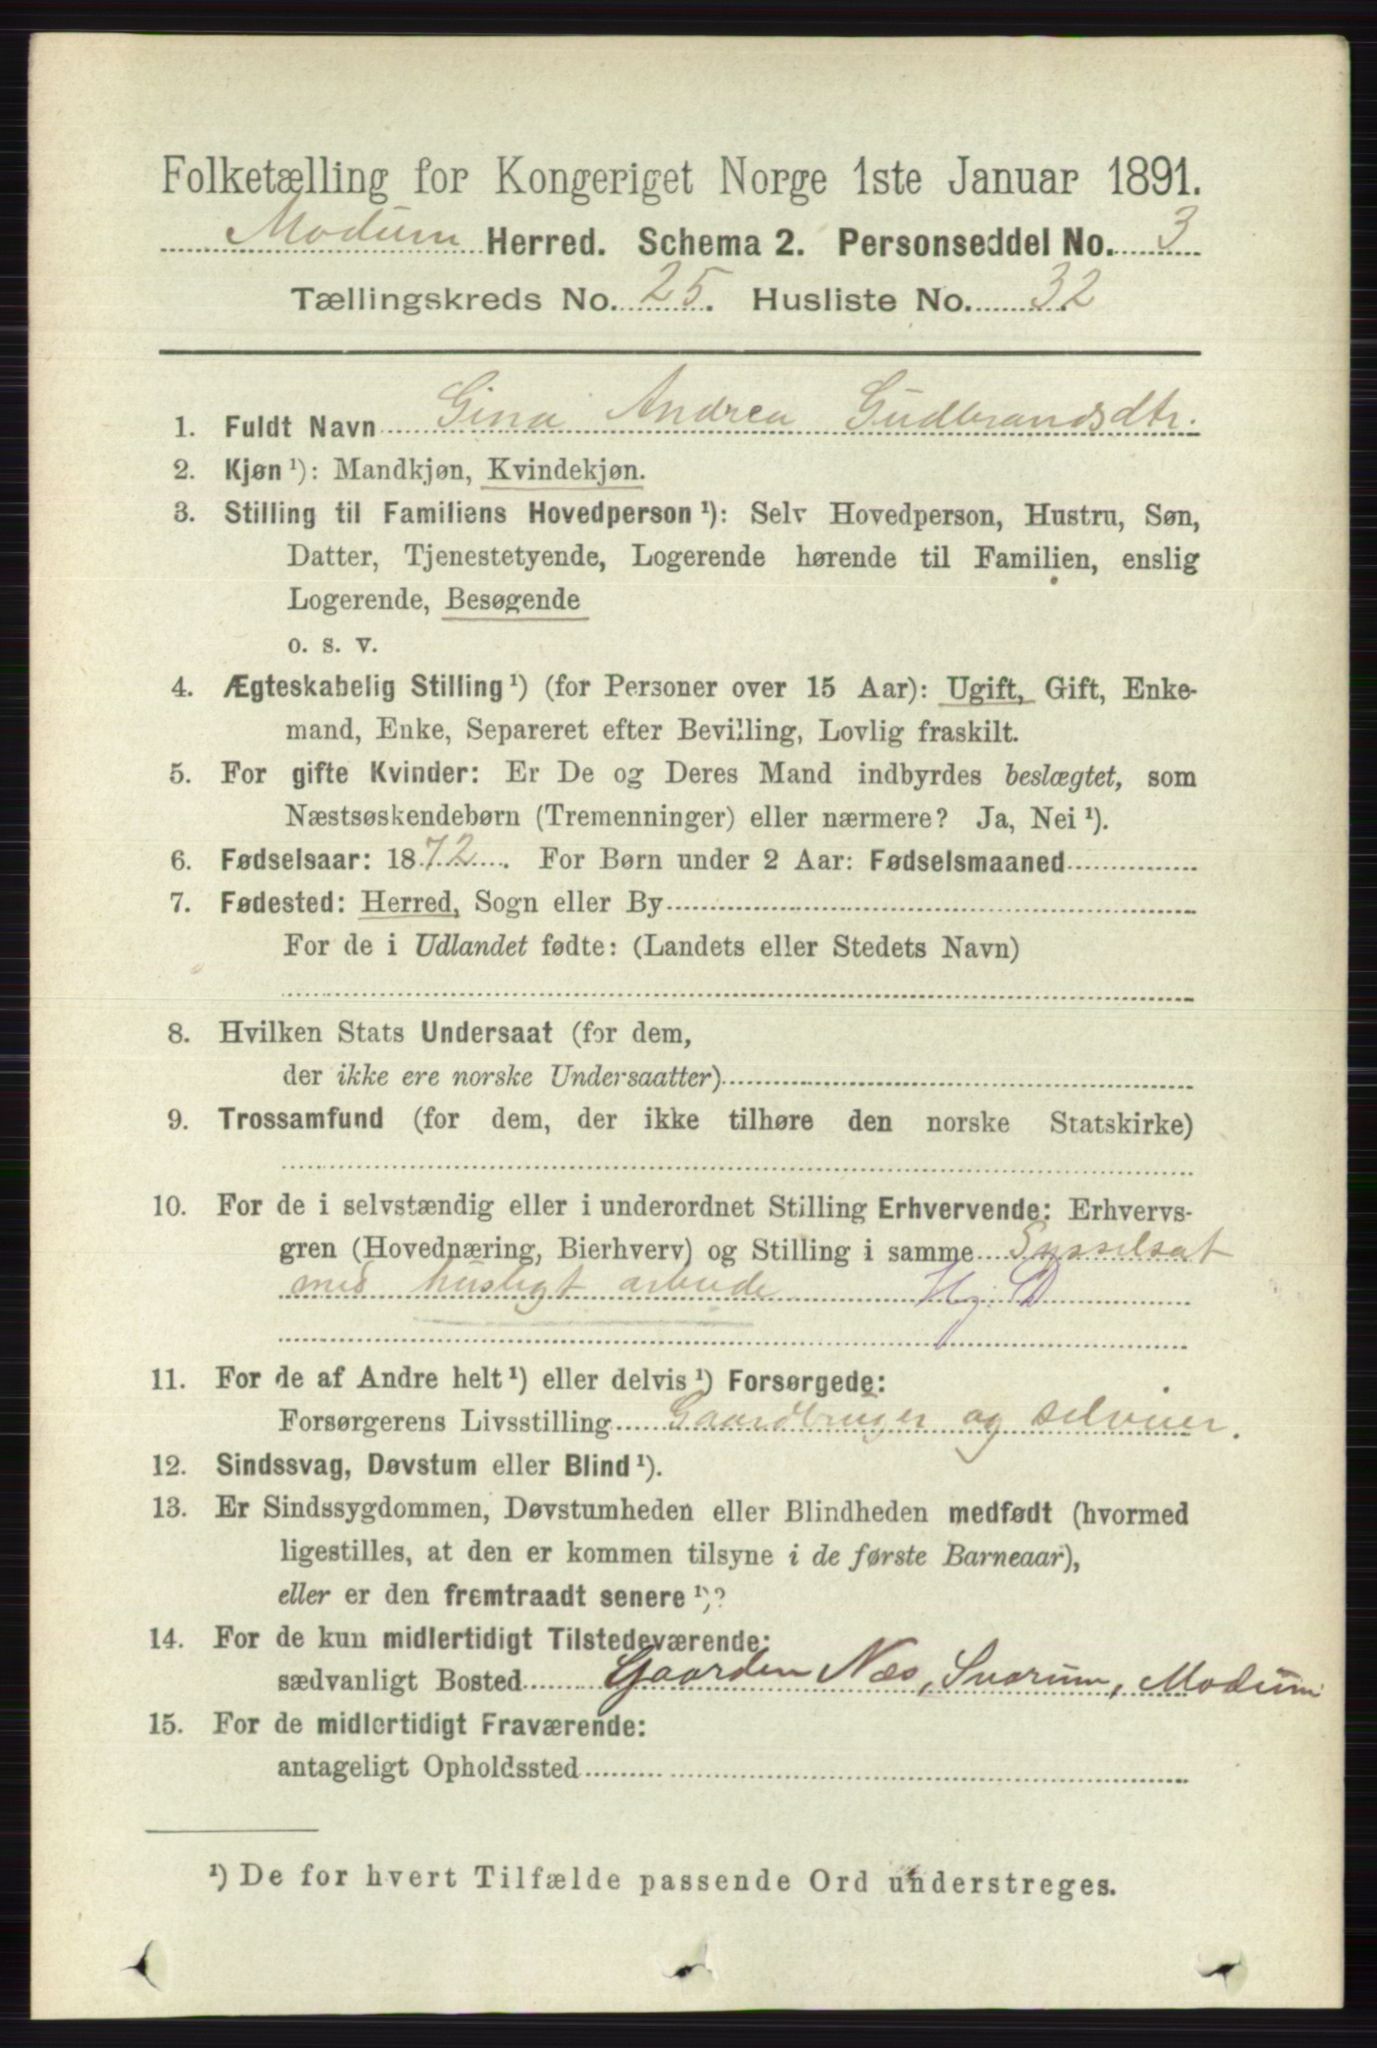 Folketælling for Kongeriget Norge 1ste Januar 1891.
Modum Herred. Schema 2. Personseddel No. 3
Tællingskreds No. 25. Husliste No. 32
1. Fuldt Navn Gina Andrea Gudbrandsdtr.
2. Kjøn¹): Mandkjøn, Kvindekjøn.
3. Stilling til Familiens Hovedperson¹): Selv Hovedperson, Hustru, Søn,
Datter, Tjenestetyende, Logerende hørende til Familien, enslig
Logerende, Besøgende
o. s. v.
4. Ægteskabelig Stilling¹) (for Personer over 15 Aar): Ugift, Gift, Enke-
mand, Enke, Separeret efter Bevilling, Lovlig fraskilt.
5. For gifte Kvinder: Er De og Deres Mand indbyrdes beslægtet, som
Næstsøskendebørn (Tremenninger) eller nærmere? Ja, Nei¹).
6. Fødselsaar: 1872. For Børn under 2 Aar: Fødselsmaaned
7. Fødested: Herred, Sogn eller By
For de i Udlandet fødte: (Landets eller Stedets Navn)
8. Hvilken Stats Undersaat (for dem,
der ikke ere norske Undersaatter)
9. Trossamfund (for dem, der ikke tilhøre den norske Statskirke)
10. For de i selvstændig eller i underordnet Stilling Erhvervende: Erhvervs-
gren (Hovednæring, Bierhverv) og Stilling i samme Sysselsat
med husligt arbeide
11. For de af Andre helt¹) eller delvis¹) Forsørgede:
Forsørgerens Livsstilling Gaardbruger og selveier.
12. Sindssvag, Døvstum eller Blind¹).
13. Er Sindssygdommen, Døvstumheden eller Blindheden medfødt (hvormed
ligestilles, at den er kommen tilsyne i de første Barneaar),
eller er den fremtraadt senere¹)?
14. For de kun midlertidigt Tilstedeværende:
sædvanligt Bosted Gaarden Næs, Snarum, Modum
15. For de midlertidigt Fraværende:
antageligt Opholdssted
¹) De for hvert Tilfælde passende Ord understreges.